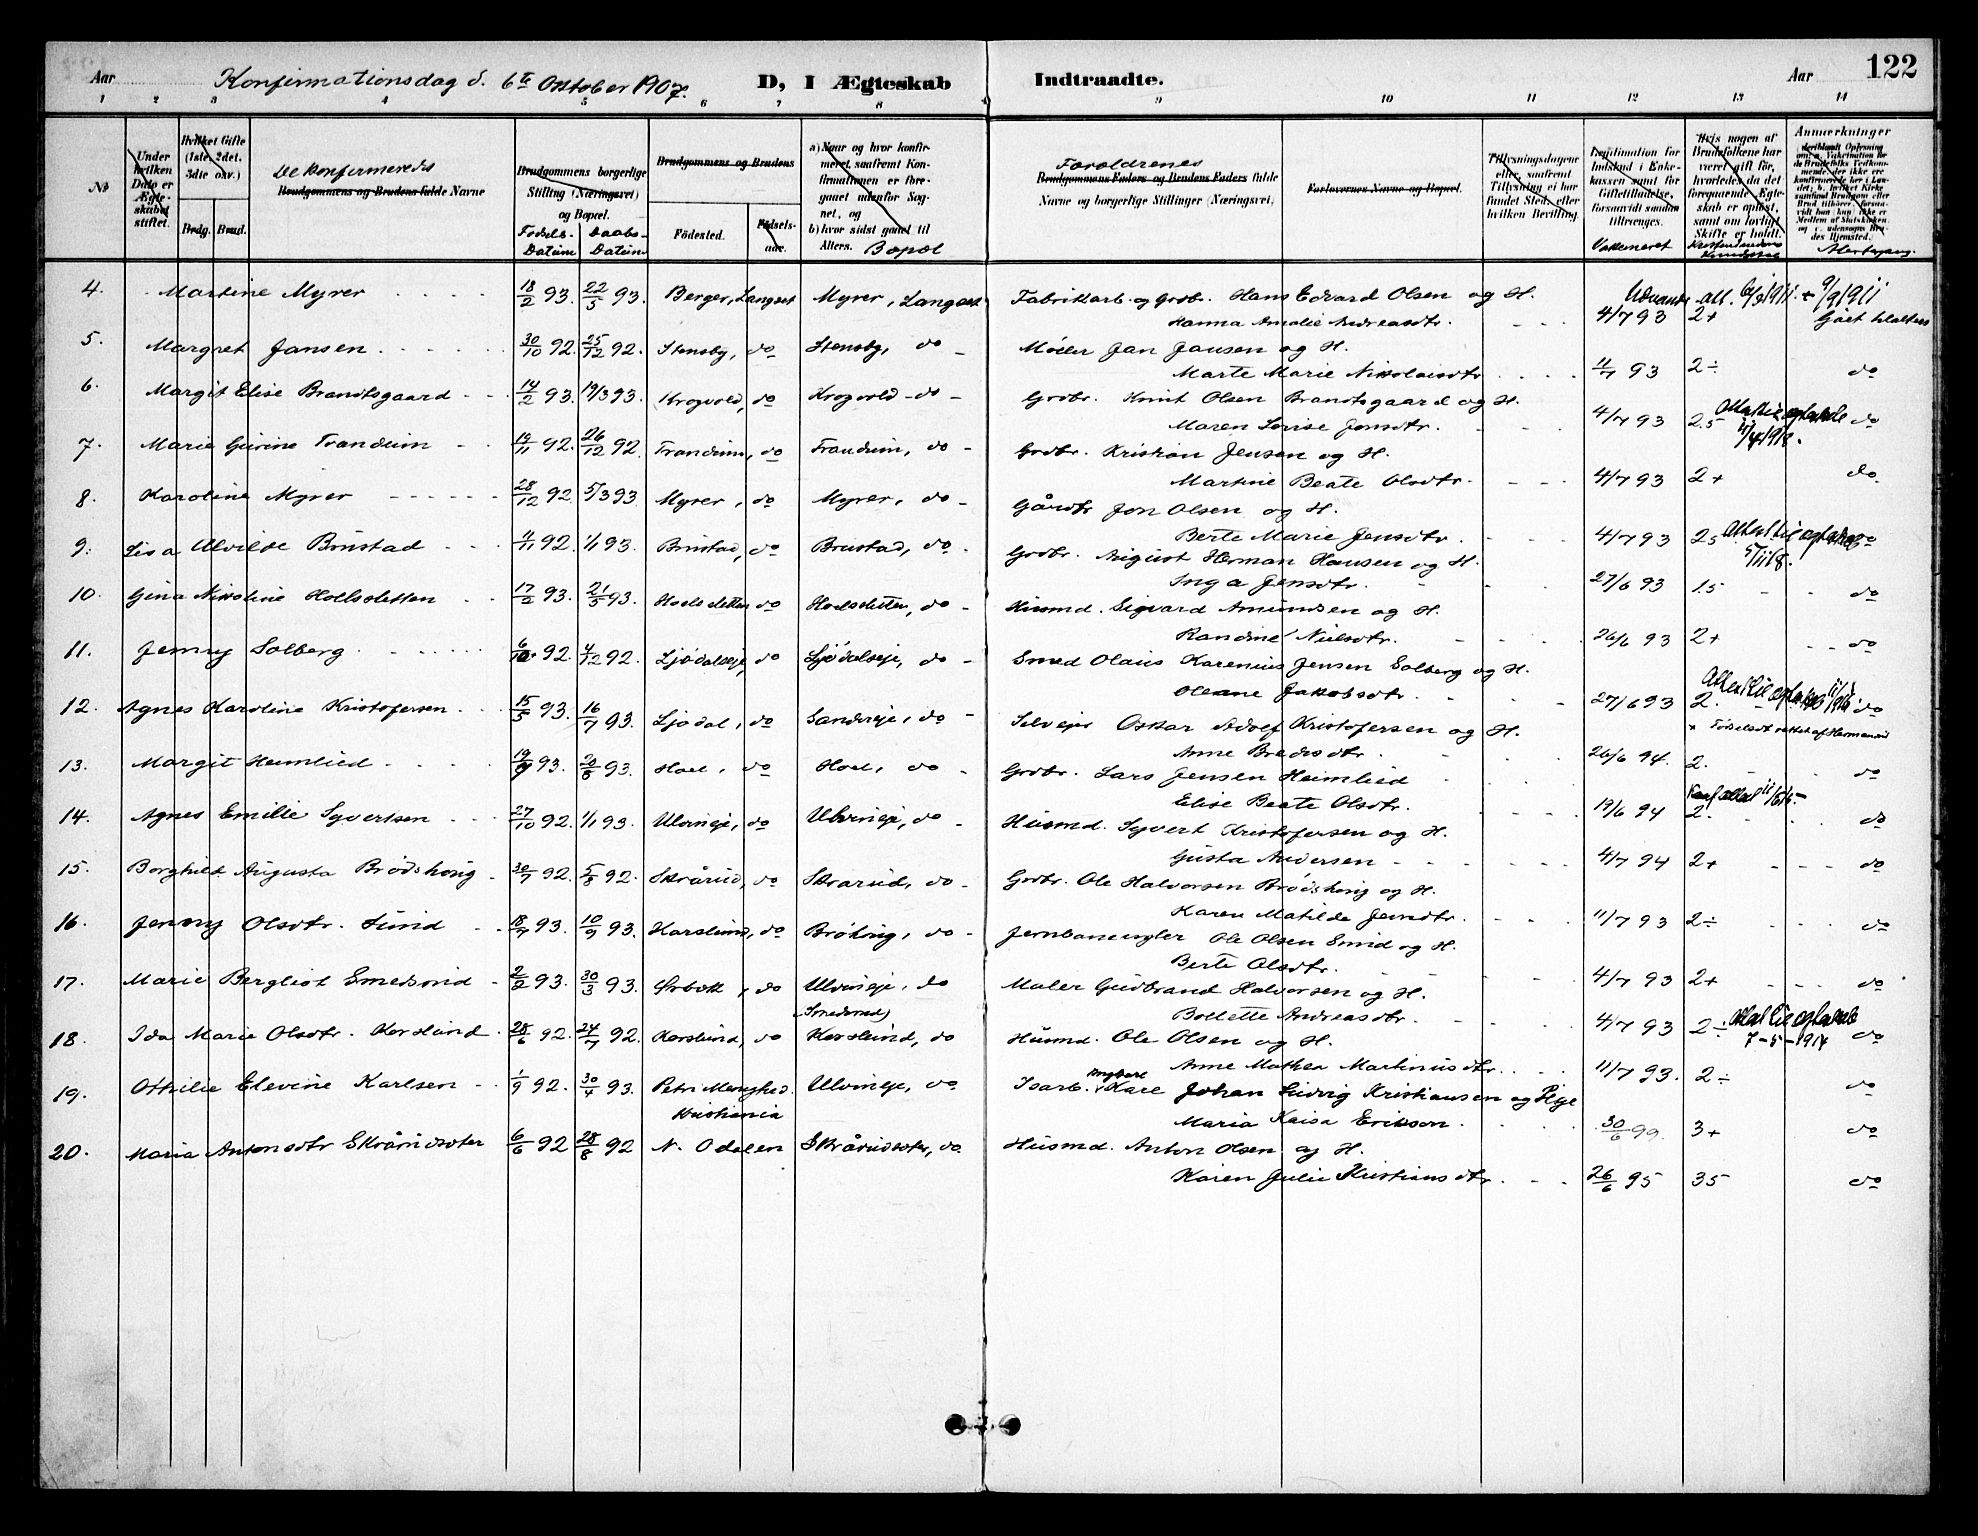 Aar Konfirmationsdag d. 6te Oktober 1907. D, I Ægteskab Indtraadte. Aar 122
1 2 3 4 5 6 7 8 9 10 11 12 13 14
No
Under hvilken Dato er Ægteskabet stiftet.
Hvilket Gifte (1ste, 2det, 3die osv.)
Brdg. Brud.
De konfirmeredes
Brudgommens og Brudens fulde Navne
Brudgommens borgerlige Stilling (Næringsvei) og Bopæl.
Fødsels-Datum Daabs-Datum
Brudgommens og Brudens
Fødested. Fødsels-aar.
a) Naar og hvor konfirmeret, saafremt Konfirmationen er foregaaet udenfor Sognet, og
b) hvor sidst gaaet til Alters. Bopæl
Forældrenes
Brudgommens Faders og Brudens Faders fulde Navne og borgerlige Stillinger (Næringsvei).
Forlovernes Navne og Bopæl.
Tillysningsdagene eller, saafremt Tillysning ei har fundet Sted, efter hvilken Bevilling.
Legitimation for Indskud i Enkekassen samt for Giftetilladelse, forsaavidt saadan tiltrænges.
Vakcineret
Hvis nogen af Brudefolkene har været gift før, hvorledes da det foregaaende Ægteskab er opløst, samt om lovligt Skifte er holdt.
Kristendoms Kundskab
Anmerkninger
Altergang.
4. Martine Myrer 18/2 93. 22/5 93. Berger, Langset Myrer, Langset Fabrikarb. og Grdbr. Hans Edvard Olsen og H.
Hanna Amalie Andreasdtr. 4/7 93 2+ Gået til alters
5. Margret Jansen 30/10 92. 25/12 92. Stensby, do Stensby, do Møller Jan Jansen og H.
Marte Marie Nikolaisdtr 4/7 93 2÷ do
6. Margit Elise Brandtsgaard 14/2 93. 19/3 93. Krogvold, do Krogvold do Grdbr. Knut Olsen Brandtsgaard og H.
Maren Lovise Jensdtr. 4/7 93 2.5 do
7. Marie Gurine Trandum 14/11 92. 26/12 92. Trandum, do Trandum, do Grdbr. Kristian Jensen og H.
Martine Beate Olsdtr. 4/7 93 2+ do
8. Karoline Myrer 28/12 92 5/3 93 Myrer, do Myrer, do Gårdbr Jon Olsen og H.
Berte Marie Jensdtr. 4/7 93 2.5 do
9. Lisa Ulvilde Brustad 4/11 92. 1/1 93. Brustad, do Brustad, do Grdbr. August Herman Hansen og H.
Inga Jensdtr. 27/6 93 1.5 do
10. Gina Nikoline Holsletten 17/2 93. 21/5 93. Hoelsletten do Hoelsletten, do Husmd. Sigvard Amundsen og H.
Randine Nielsdtr. 26/6 93 2+ do
11. Jenny Solberg 6/10 92. 4/12 92. Ljødalseje, do Ljødalseje, do Smed Olaus Karenius Jensen Solberg og H.
Oleane Jakobsdtr. 27/6 93 2. do
12. Agnes Karoline Kristofersen 15/5 93. 16/7 93. Ljødal, do Sandseje, do Selvejer Oskar Adolf Kristofersen og H.
Anne Bredesdtr. 26/6 94. 2. do
13. Margit Heimlied 19/9 93. 20/8 93. Hoel, do Hoel, do Grdbr. Lars Jensen Heimlied
Elise Beate Olsdtr. 19/6 94 2. do
14. Agnes Emilie Syvertsen 27/10 92. 1/1 93. Ulvineje, do Ulvineje, do Husmd. Syvert Kristofersen og H.
Gusta Andersen 4/7 94 2+ do
15. Borghild Augusta Brødshoug 30/7 92. 5/8 92. Skårud, do Skarud, do Grdbr. Ole Halvorsen Brødshoug og H.
Karen Matilde Jensdtr. 11/7 93 2÷ do
16. Jenny Olsdtr. Sund 18/7 93. 10/9 93. Korslund, do Jernbanengler Ole Olsen Sund og H.
Berte Olsdtr. 4/7 93 2+ do
17. Marie Bergliot Smedsrud 2/2 93. 30/3 93. do Ulvineje, do Maler Gudbrand Halvorsen og H.
(Smedsrud) Bollette Andreasdtr. 4/7 93 2÷ do
18. Ida Marie Olsdtr. Korslund 28/6 92. 24/7 92. Korslund, do Korslund, do Husmd. Ole Olsen og H.
Anne Mathea Martiniusdtr. 11/7 93. 2÷ do
19. Othilie Elevine Karlsen 1/9 92. 30/4 93. Petri Menighed. Kristiania Ulvineje, do Isarb. Karl Johan Ludvig Kristiansen og Pige
Maria Kaisa Erikson. 30/6 99 3+ do
20. Maria Antonsdtr Skårudseter 6/6 92 28/8 92 N. Odalen Skårudseter, do Husmd. Anton Olsen og H.
Karen Julie Kristiansdtr. 26/6 95 35 do